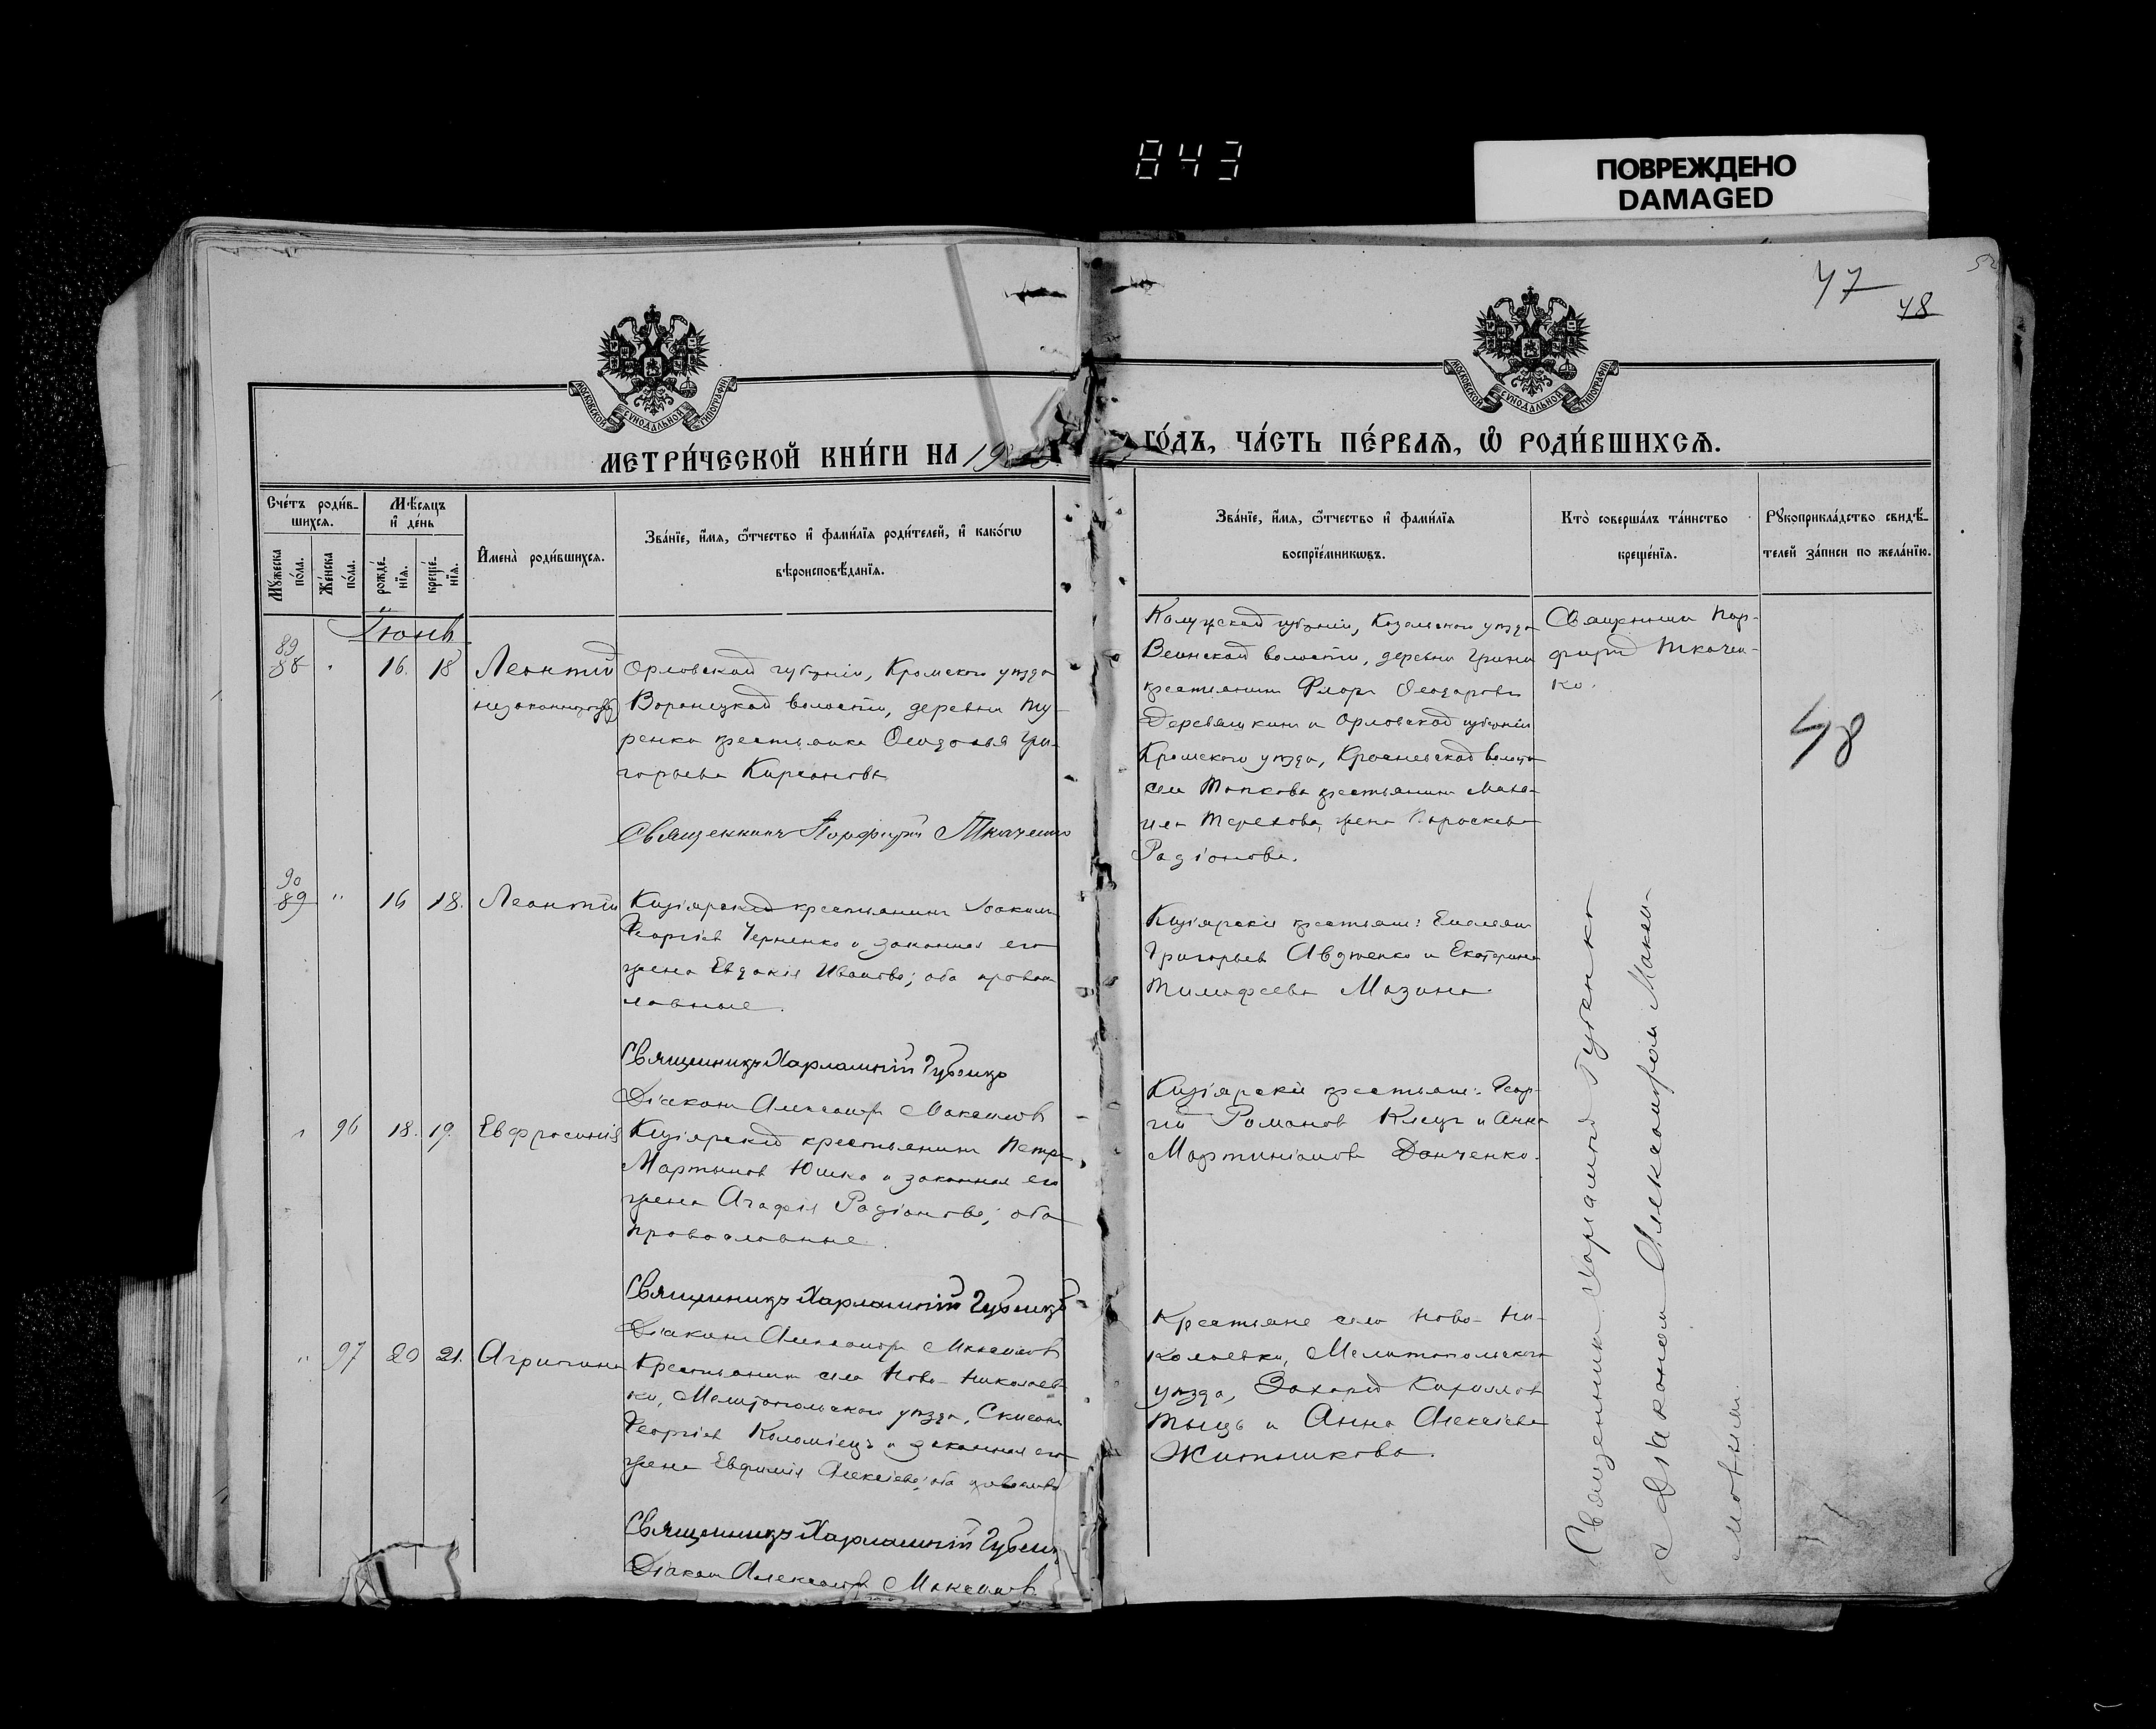 843
ПОВРЕЖДЕНО
DAMAGED
47
48
52
МОСКОВСКОЙ СѴНОДАЛЬНОЙ ТИПОГРАФІИ
МОСКОВСКОЙ СѴНОДАЛЬНОЙ ТИПОГРАФІИ
МЕТРИ́ЧЕСКОЙ КНИ́ГИ НА 19
ГО́ДЪ, ЧА́СТЬ ПЕ́РВАѦ, Ѡ҆ РОДИ́ВШИХСѦ.
Сче́тъ роди́в-
шихсѧ.
Мѣ́сѧцъ
и҆ де́нь
Мꙋ́жеска
по́ла.
Же́нска
по́ла.
рожде́-
нїѧ.
креще́-
нїѧ.
И҆мена̀ роди́вшихсѧ.
Зва́нїе, и҆́мѧ, ѻ҆́тчество и҆ фами́лїѧ роди́телей, и҆ како́гѡ
вѣроисповѣ́данїѧ.
Зва́нїе, и҆́мѧ, ѻ҆́тчество и҆ фами́лїѧ
воспрїе́мникѡвъ.
Кто̀ соверша́лъ та́инство
креще́нїѧ.
Рꙋкоприкла́дство свидѣ́-
телей за́писи по жела́нїю.
Іюнь
89
88 " 16. 18 Леонтій
незаконнорожд
Орловской губерніи, Кромскаго уѣзда
Воронецкой волости, деревни Ту-
ренка крестьянка Ѳеодосья Гри-
горьева Кирсанова
Священникъ Порфирій Ткаченко
Калужской губерніи, Козельскаго уѣзда
Веинской волости, деревни Грини
крестьянинъ Флоръ Ѳеодоровъ
Деревяшкинъ и Орловской губерніи
Кромскаго уѣзда, волости
села крестьянина
Терехова, жена Параскева
Радіонова.
Священникъ Пор-
фирій Ткачен-
ко.
48
90
89 " 16 18. Леонтій
Кизіярскій крестьянинъ Іоакимъ
Георгіевъ Черненко и законная его
жена Евдокія Иванова; оба правос-
лавные.
Священникъ Харлампій Губенко
Діаконъ Александръ Максимовъ
Кизіярскіе крестьяне: Емельянъ
Григорьевъ Авдіенко и Екатерина
Тимофеева Мазина.
" 96 18. 19. Евфросинія
Кизіярскій крестьянинъ Петръ
Мартыновъ Юшко и законная его
жена Агафія Радіонова; оба
православные.
Священникъ Харлампій Губенко
Діаконъ Александръ Максимовъ
Кизіярскіе крестьяне: Геор-
гій Романовъ Клецъ и Анна
Мартиніанова Данченко.
" 97 20 21. Агрипина
Крестьянинъ села Ново-Николаев-
ки, Мелитопольскаго уѣзда,
Георгіевъ Коломіецъ и законная его
жена Евфимія Алексіева; оба православ
Священникъ Харлампій Губенк
Діаконъ Александръ Максимовъ
Крестьяне села Ново-Ни-
колаевки, Мелитопольскаго
уѣзда, Захарій Кириловъ
Тыщъ и Анна Алексіева
Житникова.
Священникъ Харлампій Губенко
съ Діакономъ Александромъ Макси-
мовымъ.